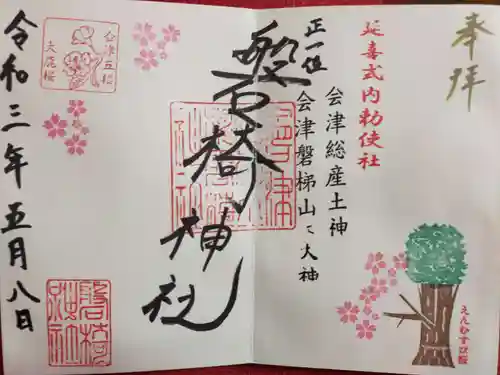 奉拝
延喜式内勅使社
会津総産土神
正一位 会津磐梯山々大神
磐椅神社
令和三年五月八日
会津五桜
大鹿桜
磐椅神社
えんむすび桜